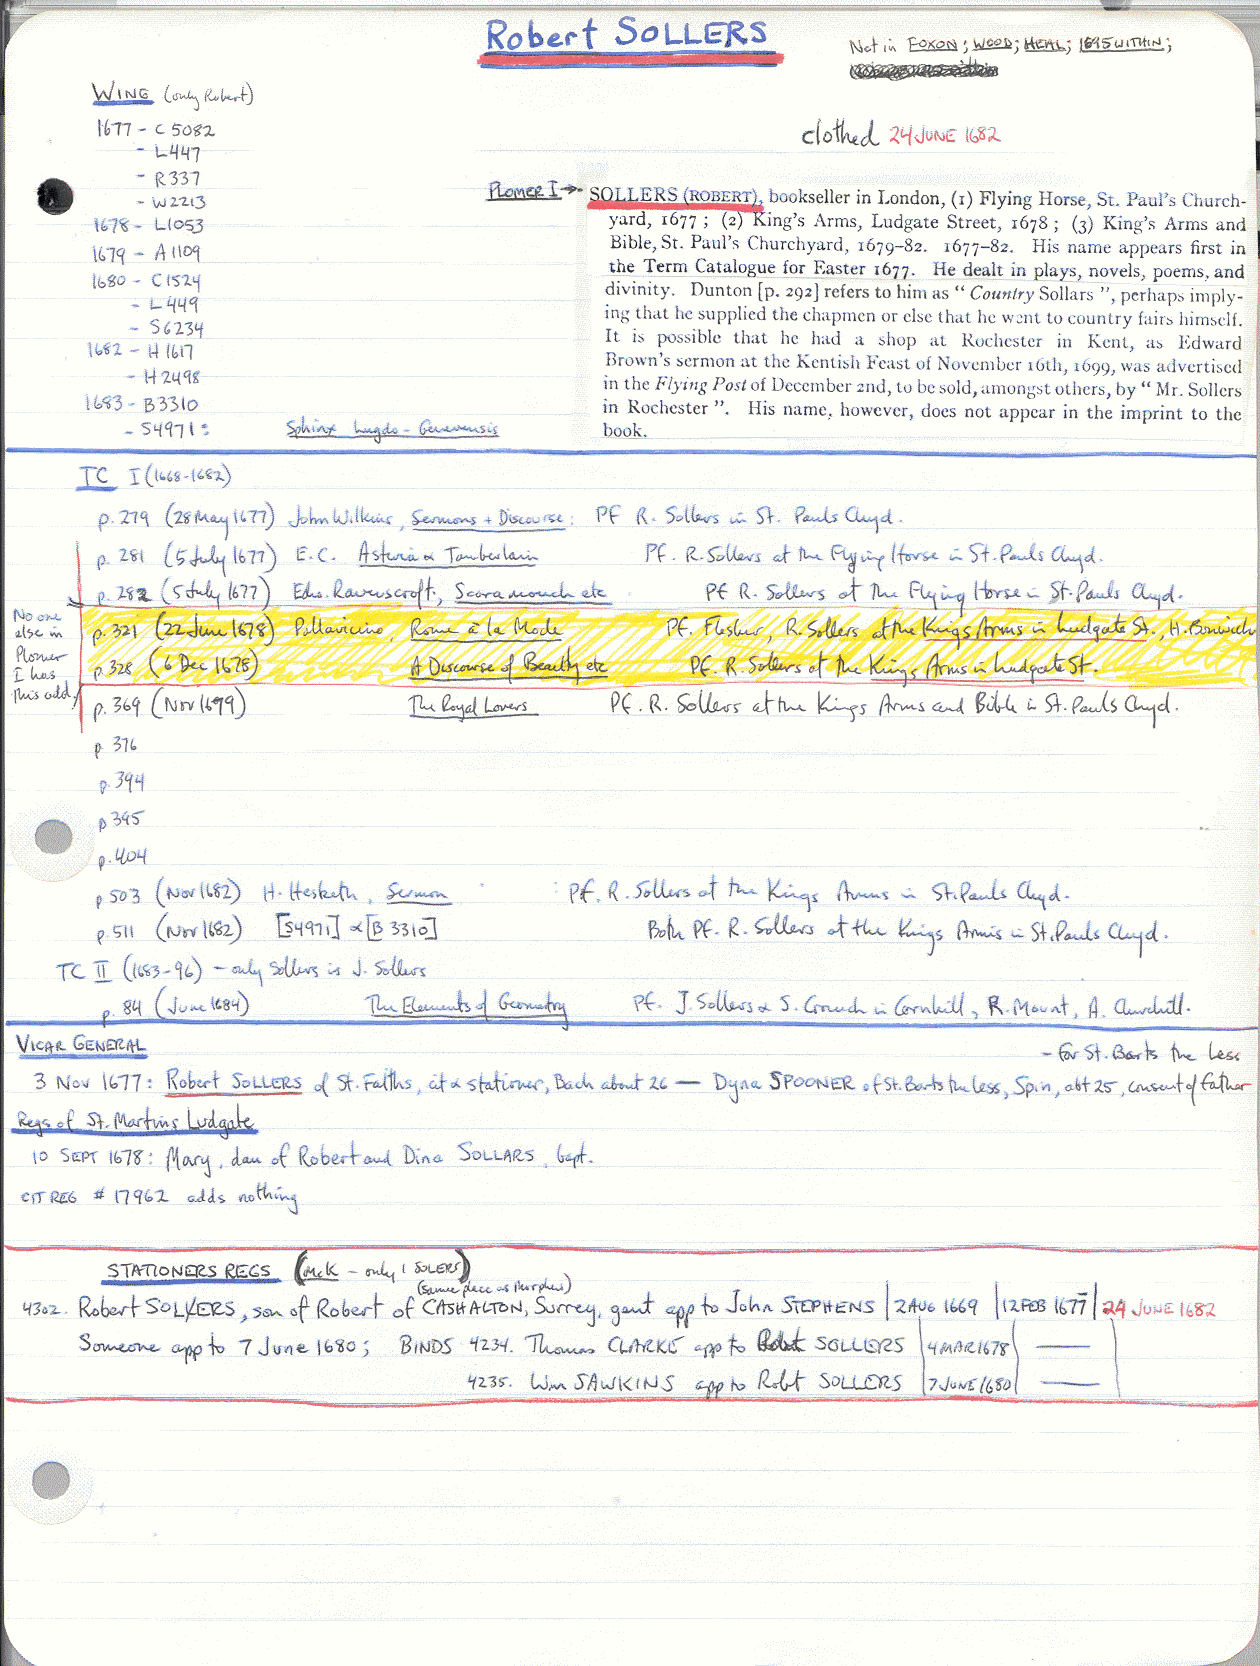 Robert SOLLERS
Not in FOXON; WOOD; HEAL; 1695 WITHIN;
WING (only Robert)
clothed 24 JUNE 1682
1677 - C 5082
- L447
- R337
- W2213
1678 - L1053
1679 - A1109
1680 - C1524
- L449
- S6234
1682 - H1617
- H2498
1683 - B3310
- S4971: Sphinx Lugdo-Genevensis
PLOMER I → SOLLERS (ROBERT), bookseller in London, (1) Flying Horse, St. Paul's Church-
yard, 1677; (2) King's Arms, Ludgate Street, 1678; (3) King's Arms and
Bible, St. Paul's Churchyard, 1679–82. 1677–82. His name appears first in
the Term Catalogue for Easter 1677. He dealt in plays, novels, poems, and
divinity. Dunton [p. 292] refers to him as "Country Sollars", perhaps imply-
ing that he supplied the chapmen or else that he went to country fairs himself.
It is possible that he had a shop at Rochester in Kent, as Edward
Brown's sermon at the Kentish Feast of November 16th, 1699, was advertised
in the Flying Post of December 2nd, to be sold, amongst others, by "Mr. Sollers
in Rochester". His name, however, does not appear in the imprint to the
book.
TC I (1668-1682)
p. 279 (28 May 1677) John Wilkins, Sermons + Discourse: PF R. Sollers in St. Pauls Chyd.
p. 281 (5 July 1677) E.C. Asteria & Tamberlain PF. R. Sollers at the Flying Horse in St. Pauls Chyd.
p. 282 (5 July 1677) Edw. Ravenscroft, Scaramouch etc PF R. Sollers at the Flying Horse in St. Pauls Chyd.
No one
else in
Plomer
I has
this add.
p. 321 (22 June 1678) Pallavicino Rome à la Mode PF. Flesher, R. Sollers at the Kings Arms in Ludgate St., H. Bonwick
p. 328 (6 Dec 1678) A Discourse of Beauty etc PF. R. Sollers at the Kings Arms in Ludgate St.
p. 369 (Nov 1699) The Royal Lovers PF. R. Sollers at the Kings Arms and Bible in St. Pauls Chyd.
p. 376
p. 394
p. 395
p. 404
p. 503 (Nov 1682) H. Hesketh, Sermon : PF. R. Sollers at the Kings Arms in St. Pauls Chyd.
p. 511 (Nov 1682) [S4971] & [B 3310] Both PF. R. Sollers at the Kings Arms in St. Pauls Chyd.
TC II (1683-96) - only Sollers is J. Sollers
p. 84 (June 1684) The Elements of Geometry PF. J. Sollers & S. Crouch in Cornhill, R. Mount, A. Churchill.
VICAR GENERAL - for St. Barts the Less
3 Nov 1677: Robert SOLLERS of St. Faiths, cit & stationer, Bach about 26 — Dyna SPOONER of St. Barts the Less, Spin, abt 25, consent of father
Regs of St. Martins Ludgate
10 SEPT 1678: Mary, dau of Robert and Dina SOLLARS, bapt.
CIT REG # 17962 adds nothing
STATIONERS REGS (McK - only 1 SOLERS)
(same place as Morphew)
4302. Robert SOLLERS, son of Robert of CASHALTON, Surrey, gent app to John STEPHENS | 2 AUG 1669 | 12 FEB 1677 | 24 JUNE 1682
Someone app to 7 June 1680; BINDS 4234. Thomas CLARKE app to Robt SOLLERS | 4 MAR 1678 | —
4235. Wm SAWKINS app to Robt SOLLERS | 7 JUNE 1680 | —